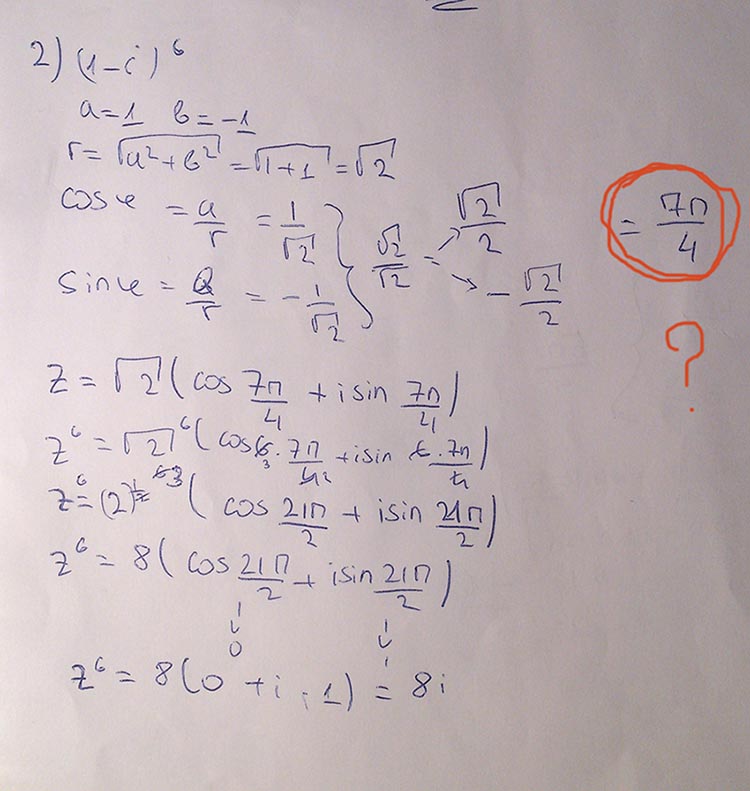 2) (1-i)^6
a=1 b=-1
r=√(a²+b²)=√(1+1)=√2
cosφ = a/r = 1/√2 } √2/√2 = √2/2
sinφ = b/r = -1/√2 -√2/2
= 7π/4
?
z = √2 (cos 7π/4 + i sin 7π/4)
z^6 = √2^6 (cos 6·7π/4 + i sin 6·7π/4)
z^6 = (2)^(1/2·6) 3 (cos 21π/2 + i sin 21π/2)
z^6 = 8 (cos 21π/2 + i sin 21π/2)
0 1
z^6 = 8(0 + i · 1) = 8i